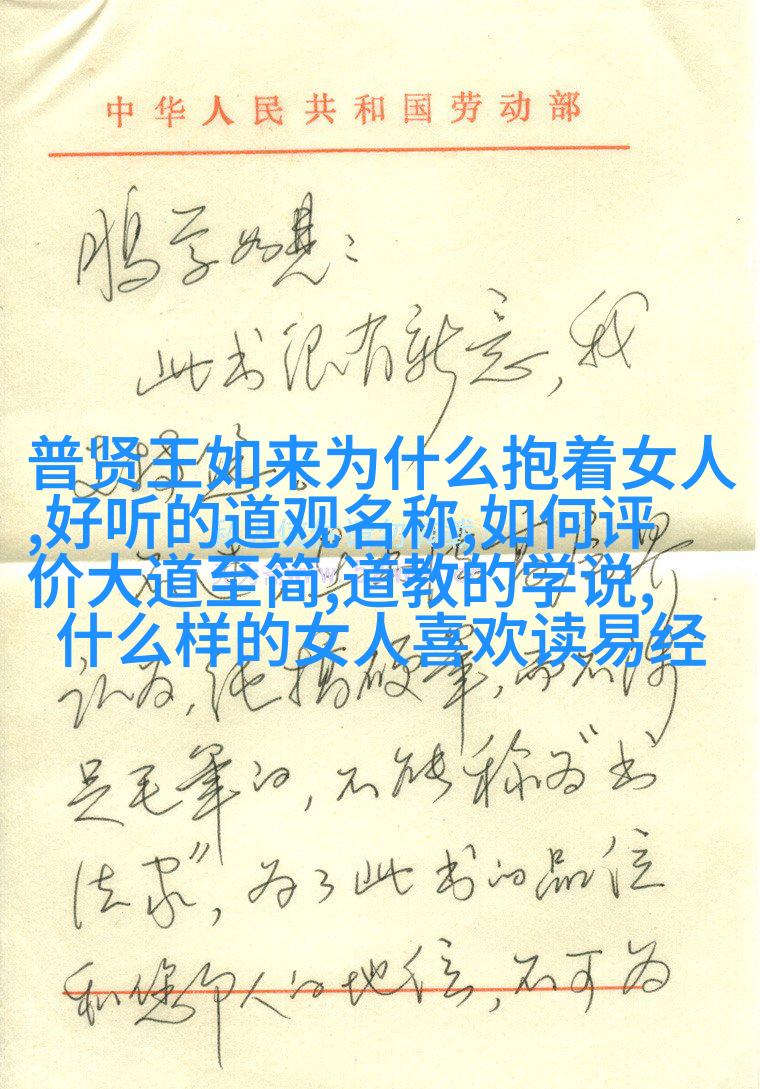 中华人民共和国劳动部
此书很有新意，我
普贤王如来为什么抱着女人
,好听的道观名称,如何评
价大道至简,道教的学说,
什么样的女人喜欢读易经
认为，纯搞硬筆，而不
是毛筆的，不能称为“书
法家”，为了此书的品位
和您个人的地位，不可为